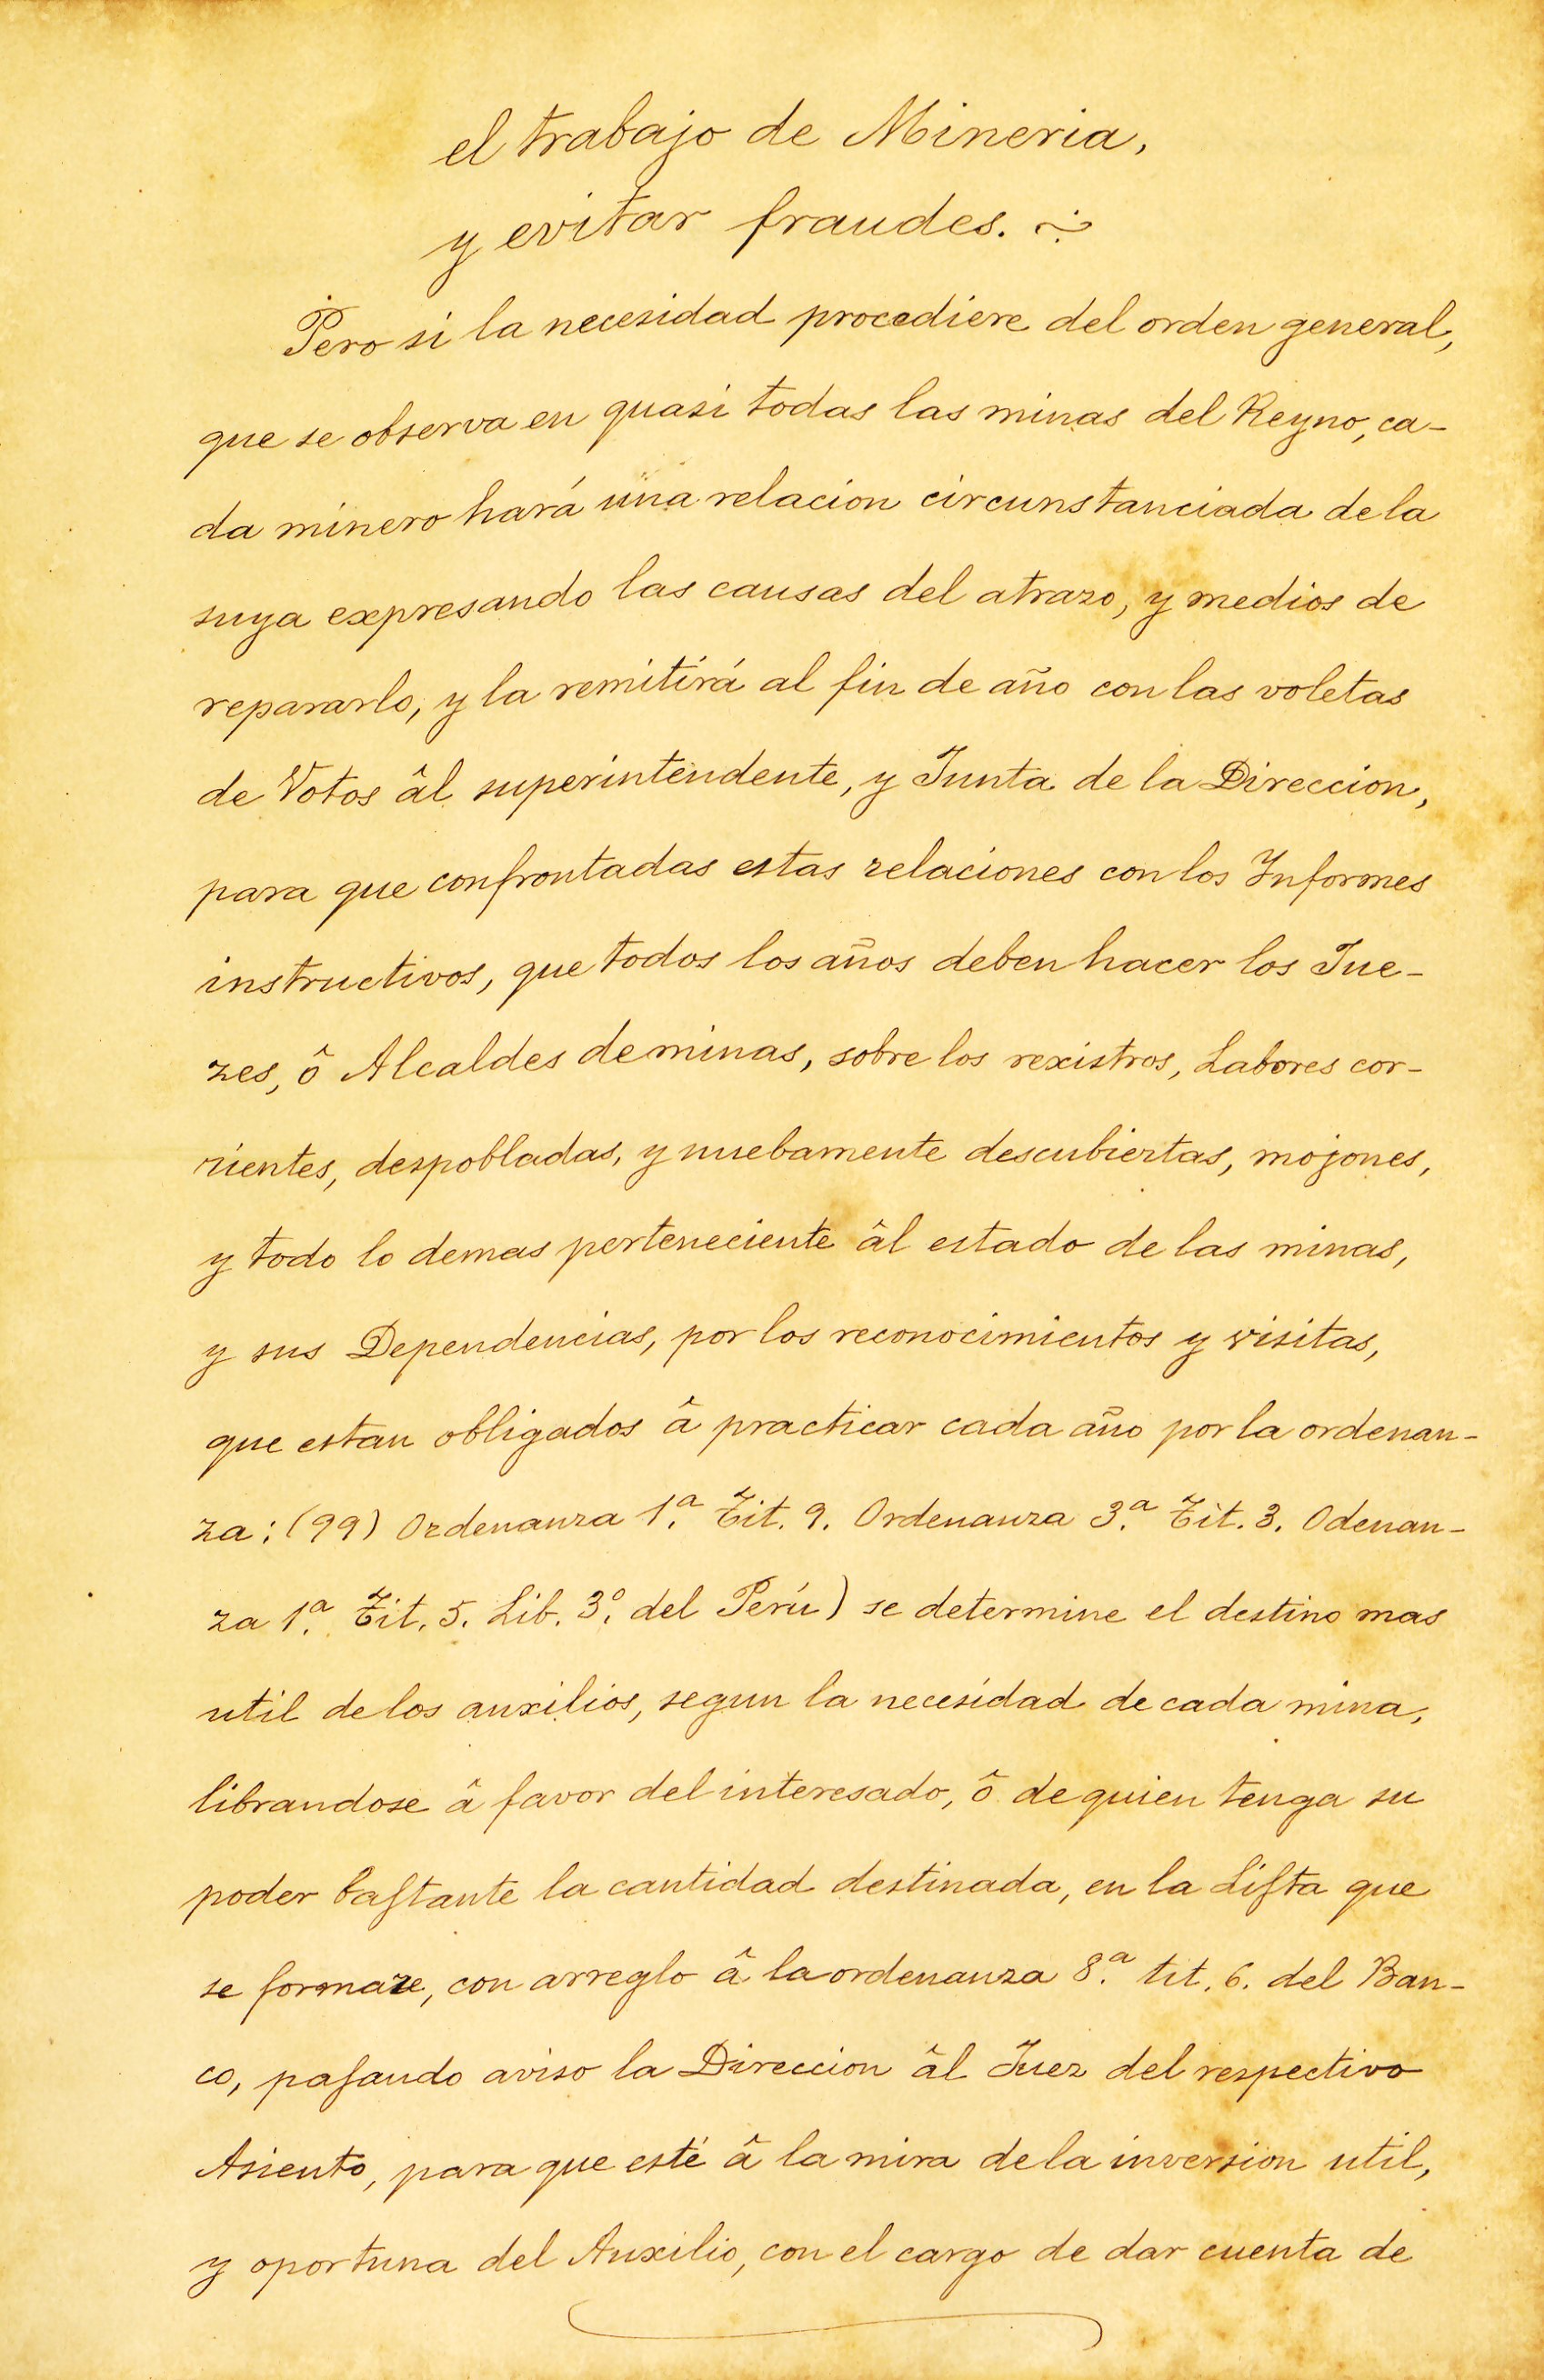 el trabajo de Mineria,
y evitar fraudes. ~
Pero si la necesidad procediere del orden general,
que se observa en quasi todas las minas del Reyno, ca-
da minero hará una relacion circunstanciada de la
suya expresando las causas del atrazo, y medios de
repararlo, y la remitirá al fin de año con las voletas
de Votos âl superintendente, y Junta de la Direccion,
para que confrontadas estas relaciones con los Informes
instructivos, que todos los años deben hacer los Jue-
zes, ô Alcaldes de minas, sobre los rexistros, Labores cor-
rientes, despobladas, y nuebamente descubiertas, mojones,
y todo lo demas perteneciente âl estado de las minas,
y sus Dependencias, por los reconocimientos y visitas,
que estan obligados â practicar cada año por la ordenan-
za: (99) Ordenanza 1.ª Tit. 9. Ordenanza 3.ª Tit. 3. Odenan-
za 1.ª Tit. 5. Lib. 3.º del Perú) se determine el destino mas
util de los auxilios, segun la necesidad de cada mina,
librandose â favor del interesado, ô de quien tenga su
poder baſtante la cantidad destinada, en la Liſta que
se formare, con arreglo â la ordenanza 8.ª tit. 6. del Ban-
co, paſando aviso la Direccion âl Juez del respectivo
Asiento, para que esté â la mira de la inversion util,
y oportuna del Auxilio, con el cargo de dar cuenta de